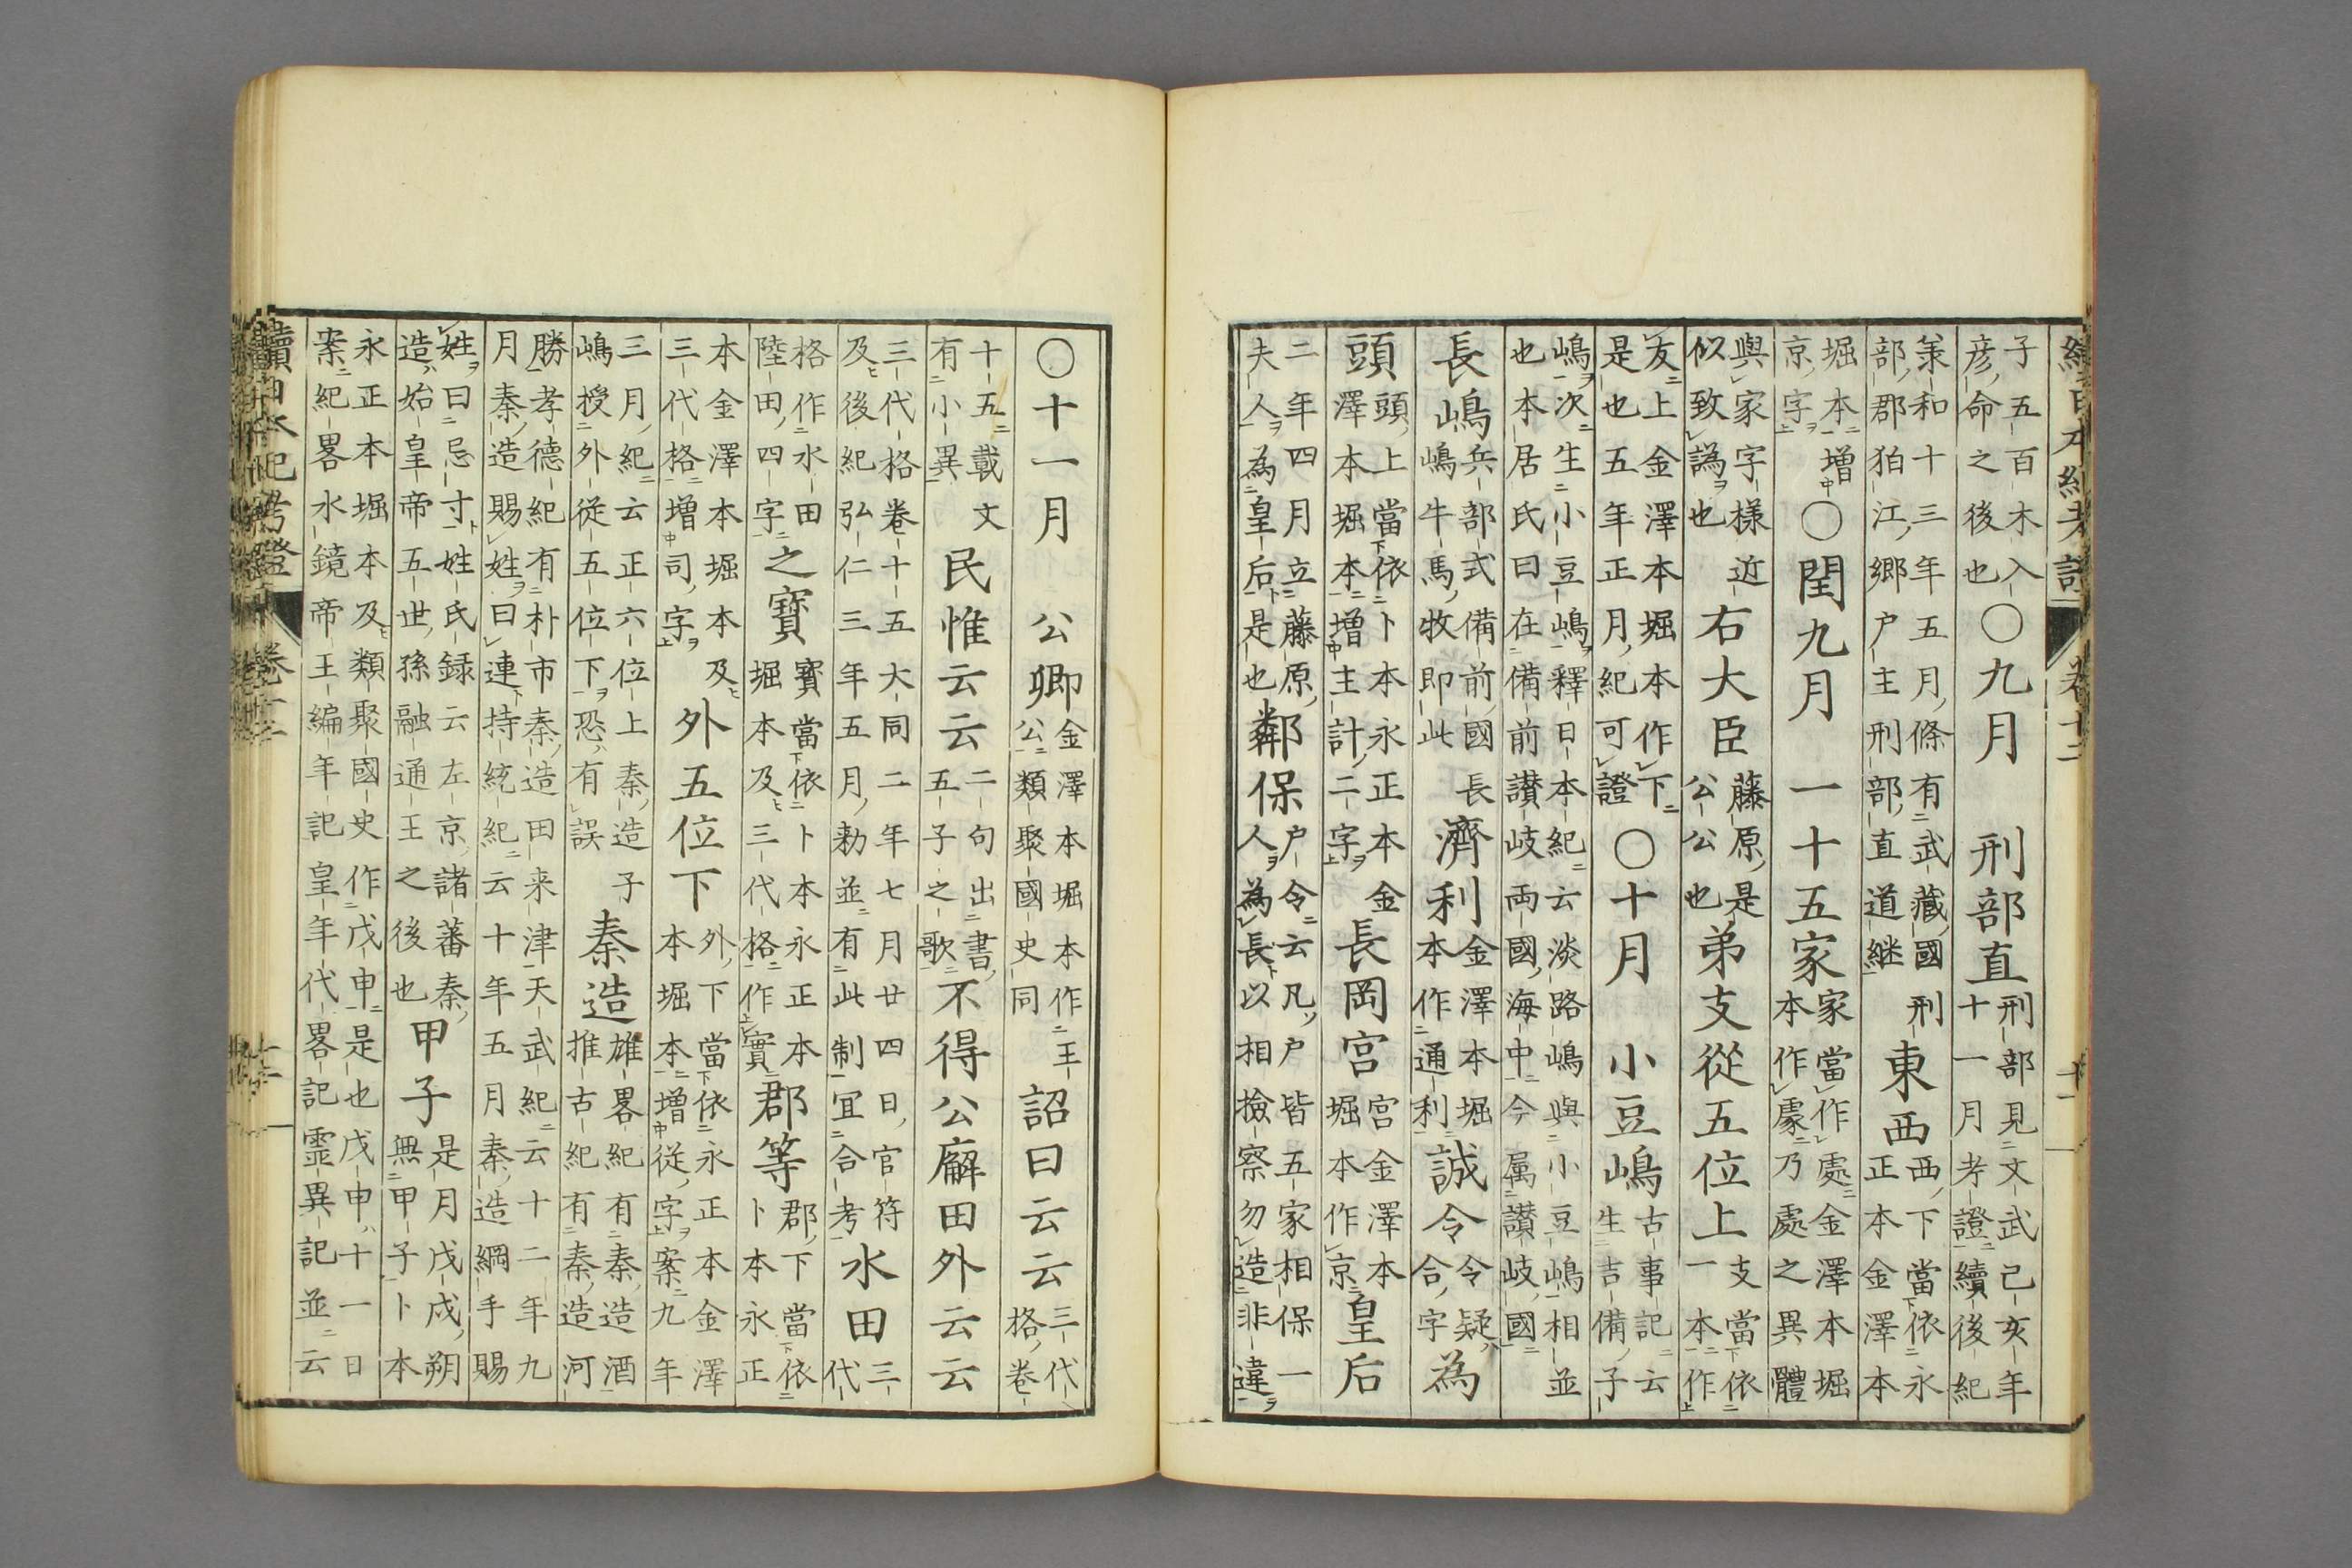 續日本紀考證 卷十二 十一
子五百木入彦命之後也○九月 刑部直刑部見文武己亥年十一月考證續後紀
羕和十三年五月條有武藏國刑部郡狛江郷戸主刑部直道継東西西下當依永正本金澤本
堀本増京字○閏九月 一十五家家當作處金澤本堀本作䖏乃處之異體
與家字樣近似致譌也右大臣藤原是公公也弟支從五位上支當依一本作
友上金澤本堀本作下是也五年正月紀可證○十月 小豆嶋古事記云生吉備子
嶋次生小豆嶋釋日本紀云淡路嶋與小豆嶋相並也本居氏曰在備前讃岐両國海中今属讃岐國
長嶋兵部式備前國長嶋牛馬牧即此濟利金澤本堀本作通利誠令令疑合字為
頭頭上當依卜本永正本金澤本堀本増主計二字長岡宮宮金澤本堀本作京皇后
二年四月立藤原夫人為皇后是也鄰保戸令云凡戸皆五家相保一人為長以相撿察勿造非違
○十一月 公卿金澤本堀本作王公類聚國史同詔曰云云三代格卷
十五載文有小異民惟云云二句出書五子之歌不得公廨田外云云
三代格卷十五大同二年七月廿四日官符及後紀弘仁三年五月勅並有此制宜合考水田三代
格作水田陸田四字之寶寶當依卜本永正本堀本及三代格作實郡等郡下當依卜本永正
本金澤本堀本及三代格増司字外五位下外下當依永正本金澤本堀本増従字案九年
三月紀云正六位上秦造子嶋授外従五位下恐有誤秦造雄畧紀有秦造酒推古紀有秦造河
勝孝德紀有朴市秦造田来津天武紀云十二年九月秦造賜姓曰連持統紀云十年五月秦造綱手賜
姓曰忌寸姓氏録云左京諸蕃秦造始皇帝五世孫融通王之後也甲子是月戊戌朔無甲子卜本
永正本堀本及類聚國史作戊申是也戊申十一日案紀畧水鏡帝王編年記皇年代畧記霊異記並云
續日本紀考證 卷十二